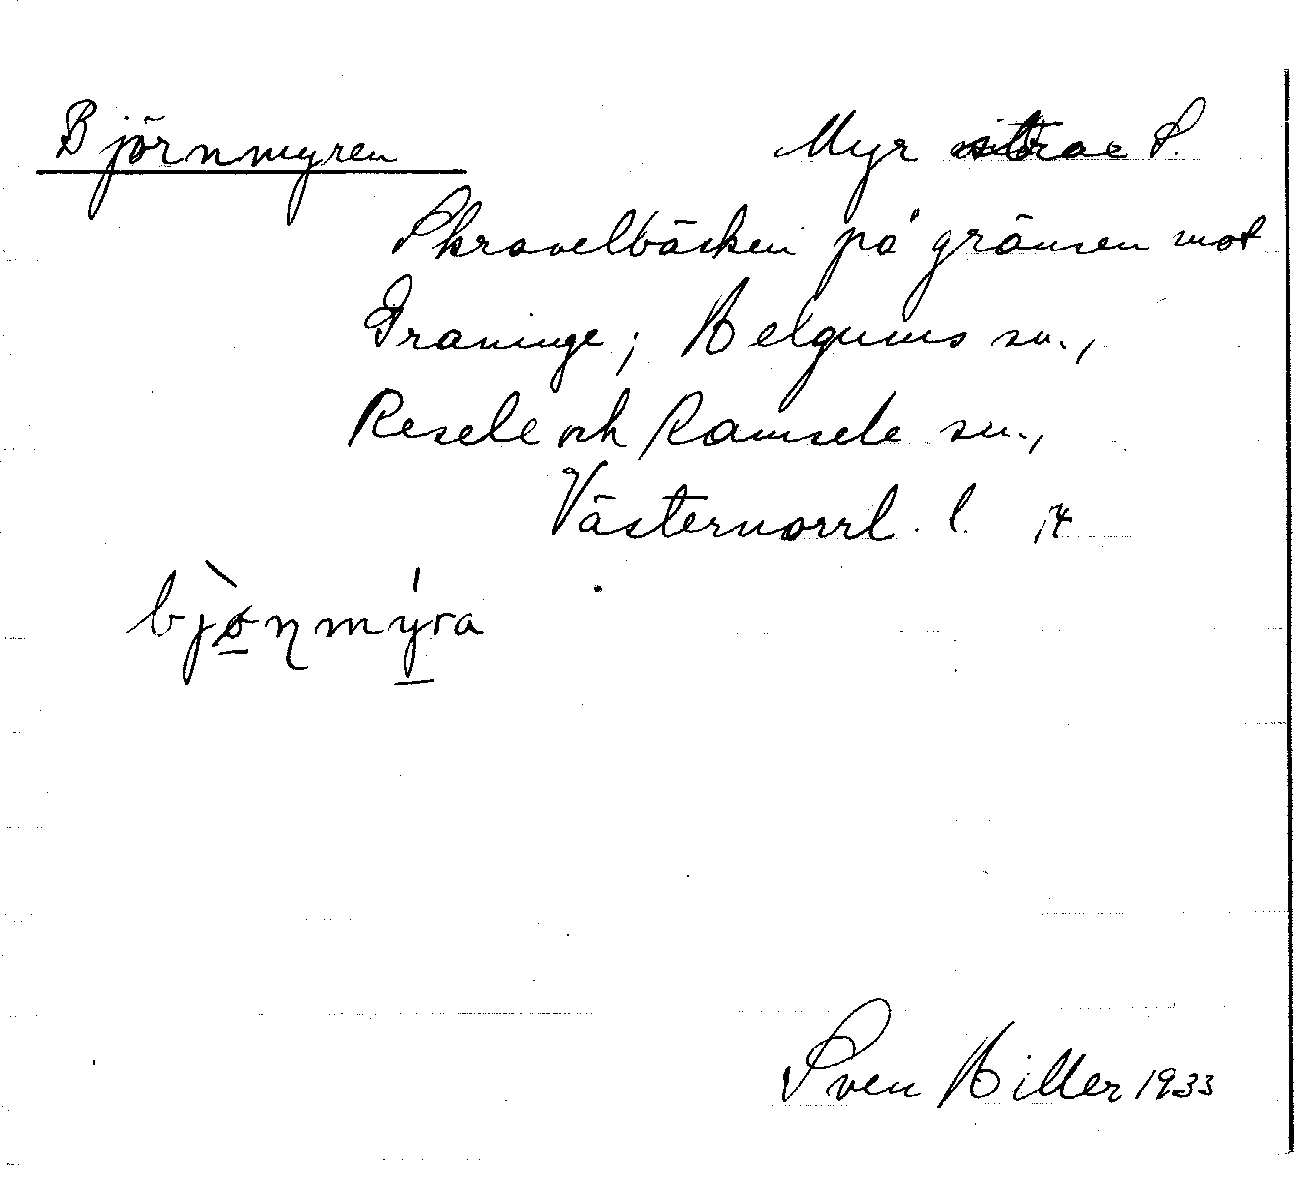 Björnmyren
Myr S.
Skravelbäcken på gränsen mot
Graninge; Helgums sn.,
Resele och Ramsele sn.,
Västernorrl. l.
bjònmýra
Sven Hiller 1933